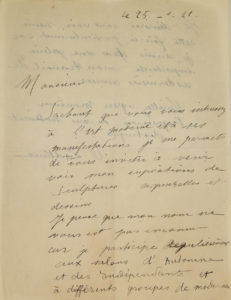 le 25 - 1 - 21
Monsieur
sachant que vous vous intéressez
à l'art moderne et à ses
manifestations je me permets
de vous inviter à venir
voir mon expositions de
sculptures aquarelles et
dessins
Je pense que mon nom ne
vous est pas inconnu
car je participe
aux salons d'Automne
et des Indépendants et
à différents groupes de